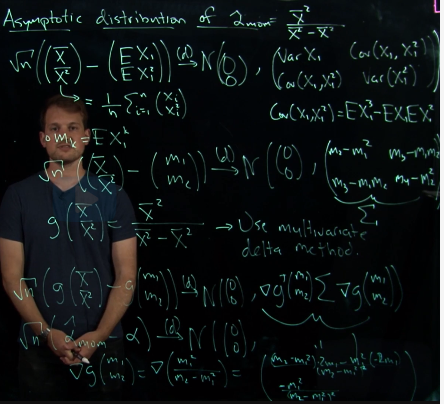 Asymptotic distribution of α̂_mom = X̄² / (\overline{X²} − X̄²)
√n ((X̄ / \overline{X²}) − (EX₁ / EX₁²)) →(d) N((0 / 0), (Var X₁ Cov(X₁, X₁²) / Cov(X₁, X₁²) Var(X₁²)))
↳ = 1/n Σᵢ₌₁ⁿ (Xᵢ / Xᵢ²)
Cov(X₁, X₁²) = EX₁³ − EX₁EX₁²
m_k = EX₁ᵏ
√n ((X̄ / \overline{X²}) − (m₁ / m₂)) →(d) N((0 / 0), (m₂ − m₁² m₃ − m₁m₂ / m₃ − m₁m₂ m₄ − m₂²))
Σ
g(X̄ / \overline{X²}) = X̄² / (\overline{X²} − X̄²) → Use multivariate
delta method.
√n (g(X̄ / \overline{X²}) − g(m₁ / m₂)) →(d) N((0 / 0), ∇gᵀ(m₁ / m₂) Σ ∇g(m₁ / m₂))
√n (α̂_mom − α) →(d) N((0 / 0),
∇g(m₁ / m₂) = ∇(m₁² / (m₂ − m₁²)) =